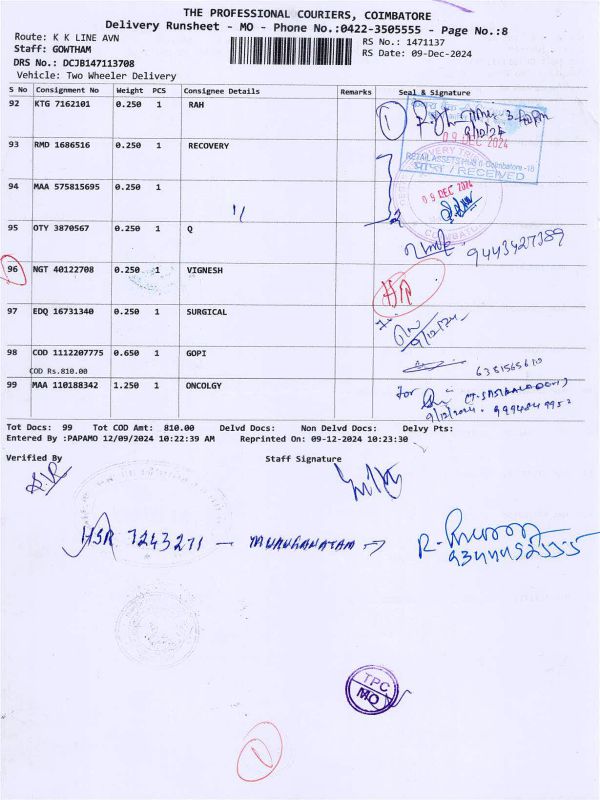 THE PROFESSIONAL COURIERS, COIMBATORE
Delivery Runsheet - MO - Phone No.:0422-3505555 - Page No.:8
Route: K K LINE AVN
RS No.: 1471137
Staff: GOWTHAM
RS Date: 09-Dec-2024
DRS No.: DCJB147113708
Vehicle: Two Wheeler Delivery
S No Consignment No Weight PCS Consignee Details Remarks Seal & Signature
92 KTG 7162101 0.250 1 RAH
1
09 DEC 2024
93 RMD 1686516 0.250 1 RECOVERY
RECEIVED
94 MAA 575815695 0.250 1
09 DEC 2024
2
95 OTY 3870567 0.250 1 Q
9443427389
96 NGT 40122708 0.250 1 VIGNESH
97 EDQ 16731340 0.250 1 SURGICAL
9/12/24
98 COD 1112207775 0.650 1 GOPI
COD Rs.810.00
6381565610
99 MAA 110188342 1.250 1 ONCOLGY
for
9/12/2024.
Tot Docs: 99 Tot COD Amt: 810.00 Delvd Docs: Non Delvd Docs: Delvy Pts:
Entered By :PAPAMO 12/09/2024 10:22:39 AM Reprinted On: 09-12-2024 10:23:30
Verified By Staff Signature
HSR 7243271 —
TPC
MO
1